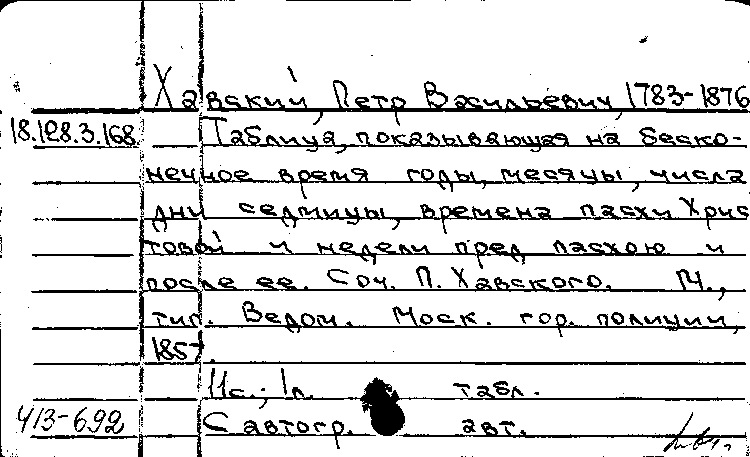 Хавский, Петр Васильевич, 1783-1876
18.128.3.168 Таблица, показывающая на беско-
нечное время годы, месяцы, числа
дни седмицы, времена пасхи Хрис
товой и недели пред пасхою и
после ее. Соч. П. Хавского. М.,
тип. Ведом. Моск. гор. полиции,
1857.
11с.; 1л. табл.
413-692 С автогр. авт.